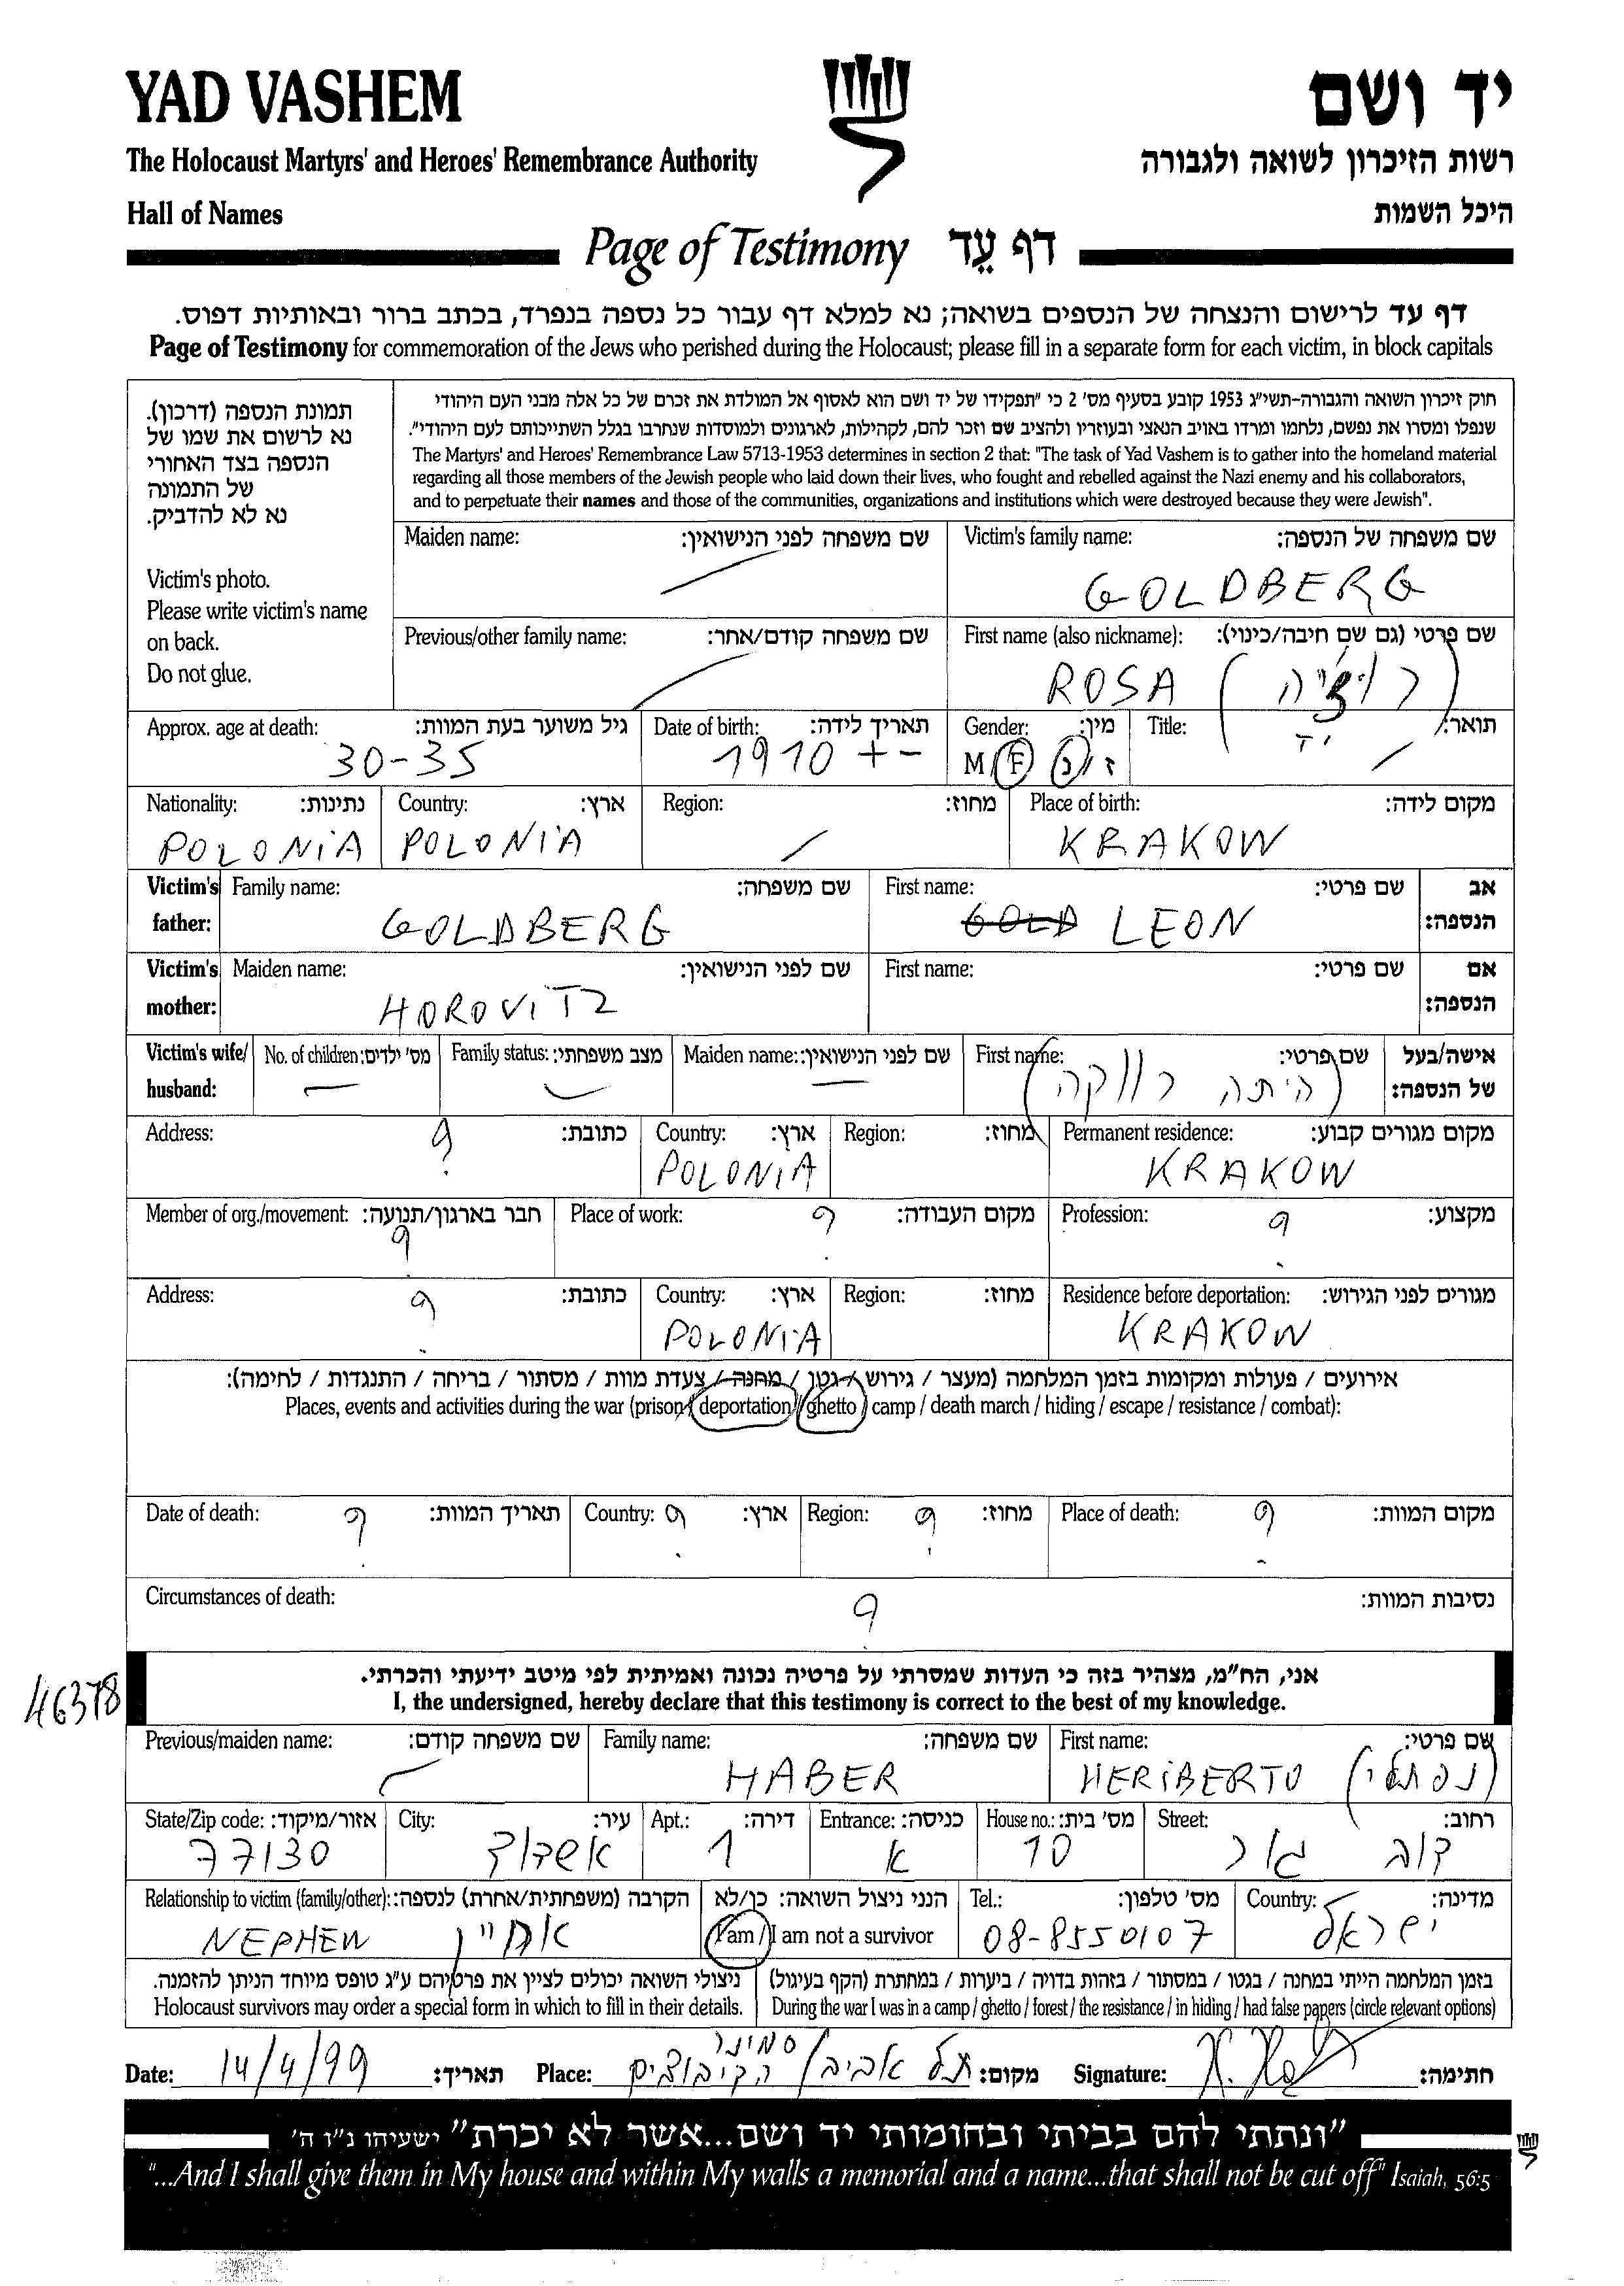 YAD VASHEM
יד ושם
The Holocaust Martyrs' and Heroes' Remembrance Authority
רשות הזיכרון לשואה ולגבורה
Hall of Names
היכל השמות
Page of Testimony דף עֵד
דף עד לרישום והנצחה של הנספים בשואה; נא למלא דף עבור כל נספה בנפרד, בכתב ברור ובאותיות דפוס.
Page of Testimony for commemoration of the Jews who perished during the Holocaust; please fill in a separate form for each victim, in block capitals
תמונת הנספה (דרכון).
נא לרשום את שמו של
הנספה בצד האחורי
של התמונה
נא לא להדביק.
Victim's photo.
Please write victim's name
on back.
Do not glue.
חוק זיכרון השואה והגבורה-תשי"ג 1953 קובע בסעיף מס' 2 כי "תפקידו של יד ושם הוא לאסוף אל המולדת את זכרם של כל אלה מבני העם היהודי
שנפלו ומסרו את נפשם, נלחמו ומרדו באויב הנאצי ובעוזריו ולהציב שם וזכר להם, לקהילות, לארגונים ולמוסדות שנחרבו בגלל השתייכותם לעם היהודי".
The Martyrs' and Heroes' Remembrance Law 5713-1953 determines in section 2 that: "The task of Yad Vashem is to gather into the homeland material
regarding all those members of the Jewish people who laid down their lives, who fought and rebelled against the Nazi enemy and his collaborators,
and to perpetuate their names and those of the communities, organizations and institutions which were destroyed because they were Jewish".
Maiden name: שם משפחה לפני הנישואין:
Victim's family name: שם משפחה של הנספה:
GOLDBERG
Previous/other family name: שם משפחה קודם/אחר:
First name (also nickname): שם פרטי (גם שם חיבה/כינוי):
ROSA
Approx. age at death: גיל משוער בעת המוות:
30-35
Date of birth: תאריך לידה:
1910 + -
Gender: מין:
M / F ז / נ
Title: תואר:
Nationality: נתינות:
POLONIA
Country: ארץ:
POLONIA
Region: מחוז:
Place of birth: מקום לידה:
KRAKOW
Victim's father:
Family name: שם משפחה:
GOLDBERG
First name: שם פרטי:
GOLD LEON
אב הנספה:
Victim's mother:
Maiden name: שם לפני הנישואין:
HOROVITZ
First name: שם פרטי:
אם הנספה:
Victim's wife/ husband:
No. of children: מס' ילדים:
Family status: מצב משפחתי:
Maiden name: שם לפני הנישואין:
First name: שם פרטי:
(היתה רווקה)
אישה/בעל של הנספה:
Address: כתובת:
?
Country: ארץ:
POLONIA
Region: מחוז:
Permanent residence: מקום מגורים קבוע:
KRAKOW
Member of org./movement: חבר בארגון/תנועה:
?
Place of work: מקום העבודה:
?
Profession: מקצוע:
?
Address: כתובת:
?
Country: ארץ:
POLONIA
Region: מחוז:
Residence before deportation: מגורים לפני הגירוש:
KRAKOW
אירועים / פעולות ומקומות בזמן המלחמה (מעצר / גירוש / גטו / מחנה / צעדת מוות / מסתור / בריחה / התנגדות / לחימה):
Places, events and activities during the war (prison / deportation / ghetto / camp / death march / hiding / escape / resistance / combat):
Date of death: תאריך המוות:
?
Country: ארץ:
?
Region: מחוז:
?
Place of death: מקום המוות:
?
Circumstances of death: נסיבות המוות:
?
46378
אני, הח"מ, מצהיר בזה כי העדות שמסרתי על פרטיה נכונה ואמיתית לפי מיטב ידיעתי והכרתי.
I, the undersigned, hereby declare that this testimony is correct to the best of my knowledge.
Previous/maiden name: שם משפחה קודם:
Family name: שם משפחה:
HABER
First name: שם פרטי:
HERIBERTO (נפתלי)
State/Zip code: אזור/מיקוד:
77130
City: עיר:
אשדוד
Apt.: דירה:
1
Entrance: כניסה:
א
House no.: מס' בית:
10
Street: רחוב:
דוב גור
Relationship to victim (family/other): הקרבה (משפחתית/אחרת) לנספה:
NEPHEW אחיין
הנני ניצול השואה: כן/לא
I am / I am not a survivor
Tel.: מס' טלפון:
08-8550107
Country: מדינה:
ישראל
ניצולי השואה יכולים לציין את פרטיהם ע"ג טופס מיוחד הניתן להזמנה.
Holocaust survivors may order a special form in which to fill in their details.
בזמן המלחמה הייתי במחנה / בגטו / במסתור / בזהות בדויה / ביערות / במחתרת (הקף בעיגול)
During the war I was in a camp / ghetto / forest / the resistance / in hiding / had false papers (circle relevant options)
Date: 14/4/99 תאריך:
Place: תל אביב / סמינר הקיבוצים מקום:
Signature: חתימה:
"ונתתי להם בביתי ובחומותי יד ושם...אשר לא יכרת" ישעיהו נ"ו ה'
"...And I shall give them in My house and within My walls a memorial and a name...that shall not be cut off" Isaiah, 56:5